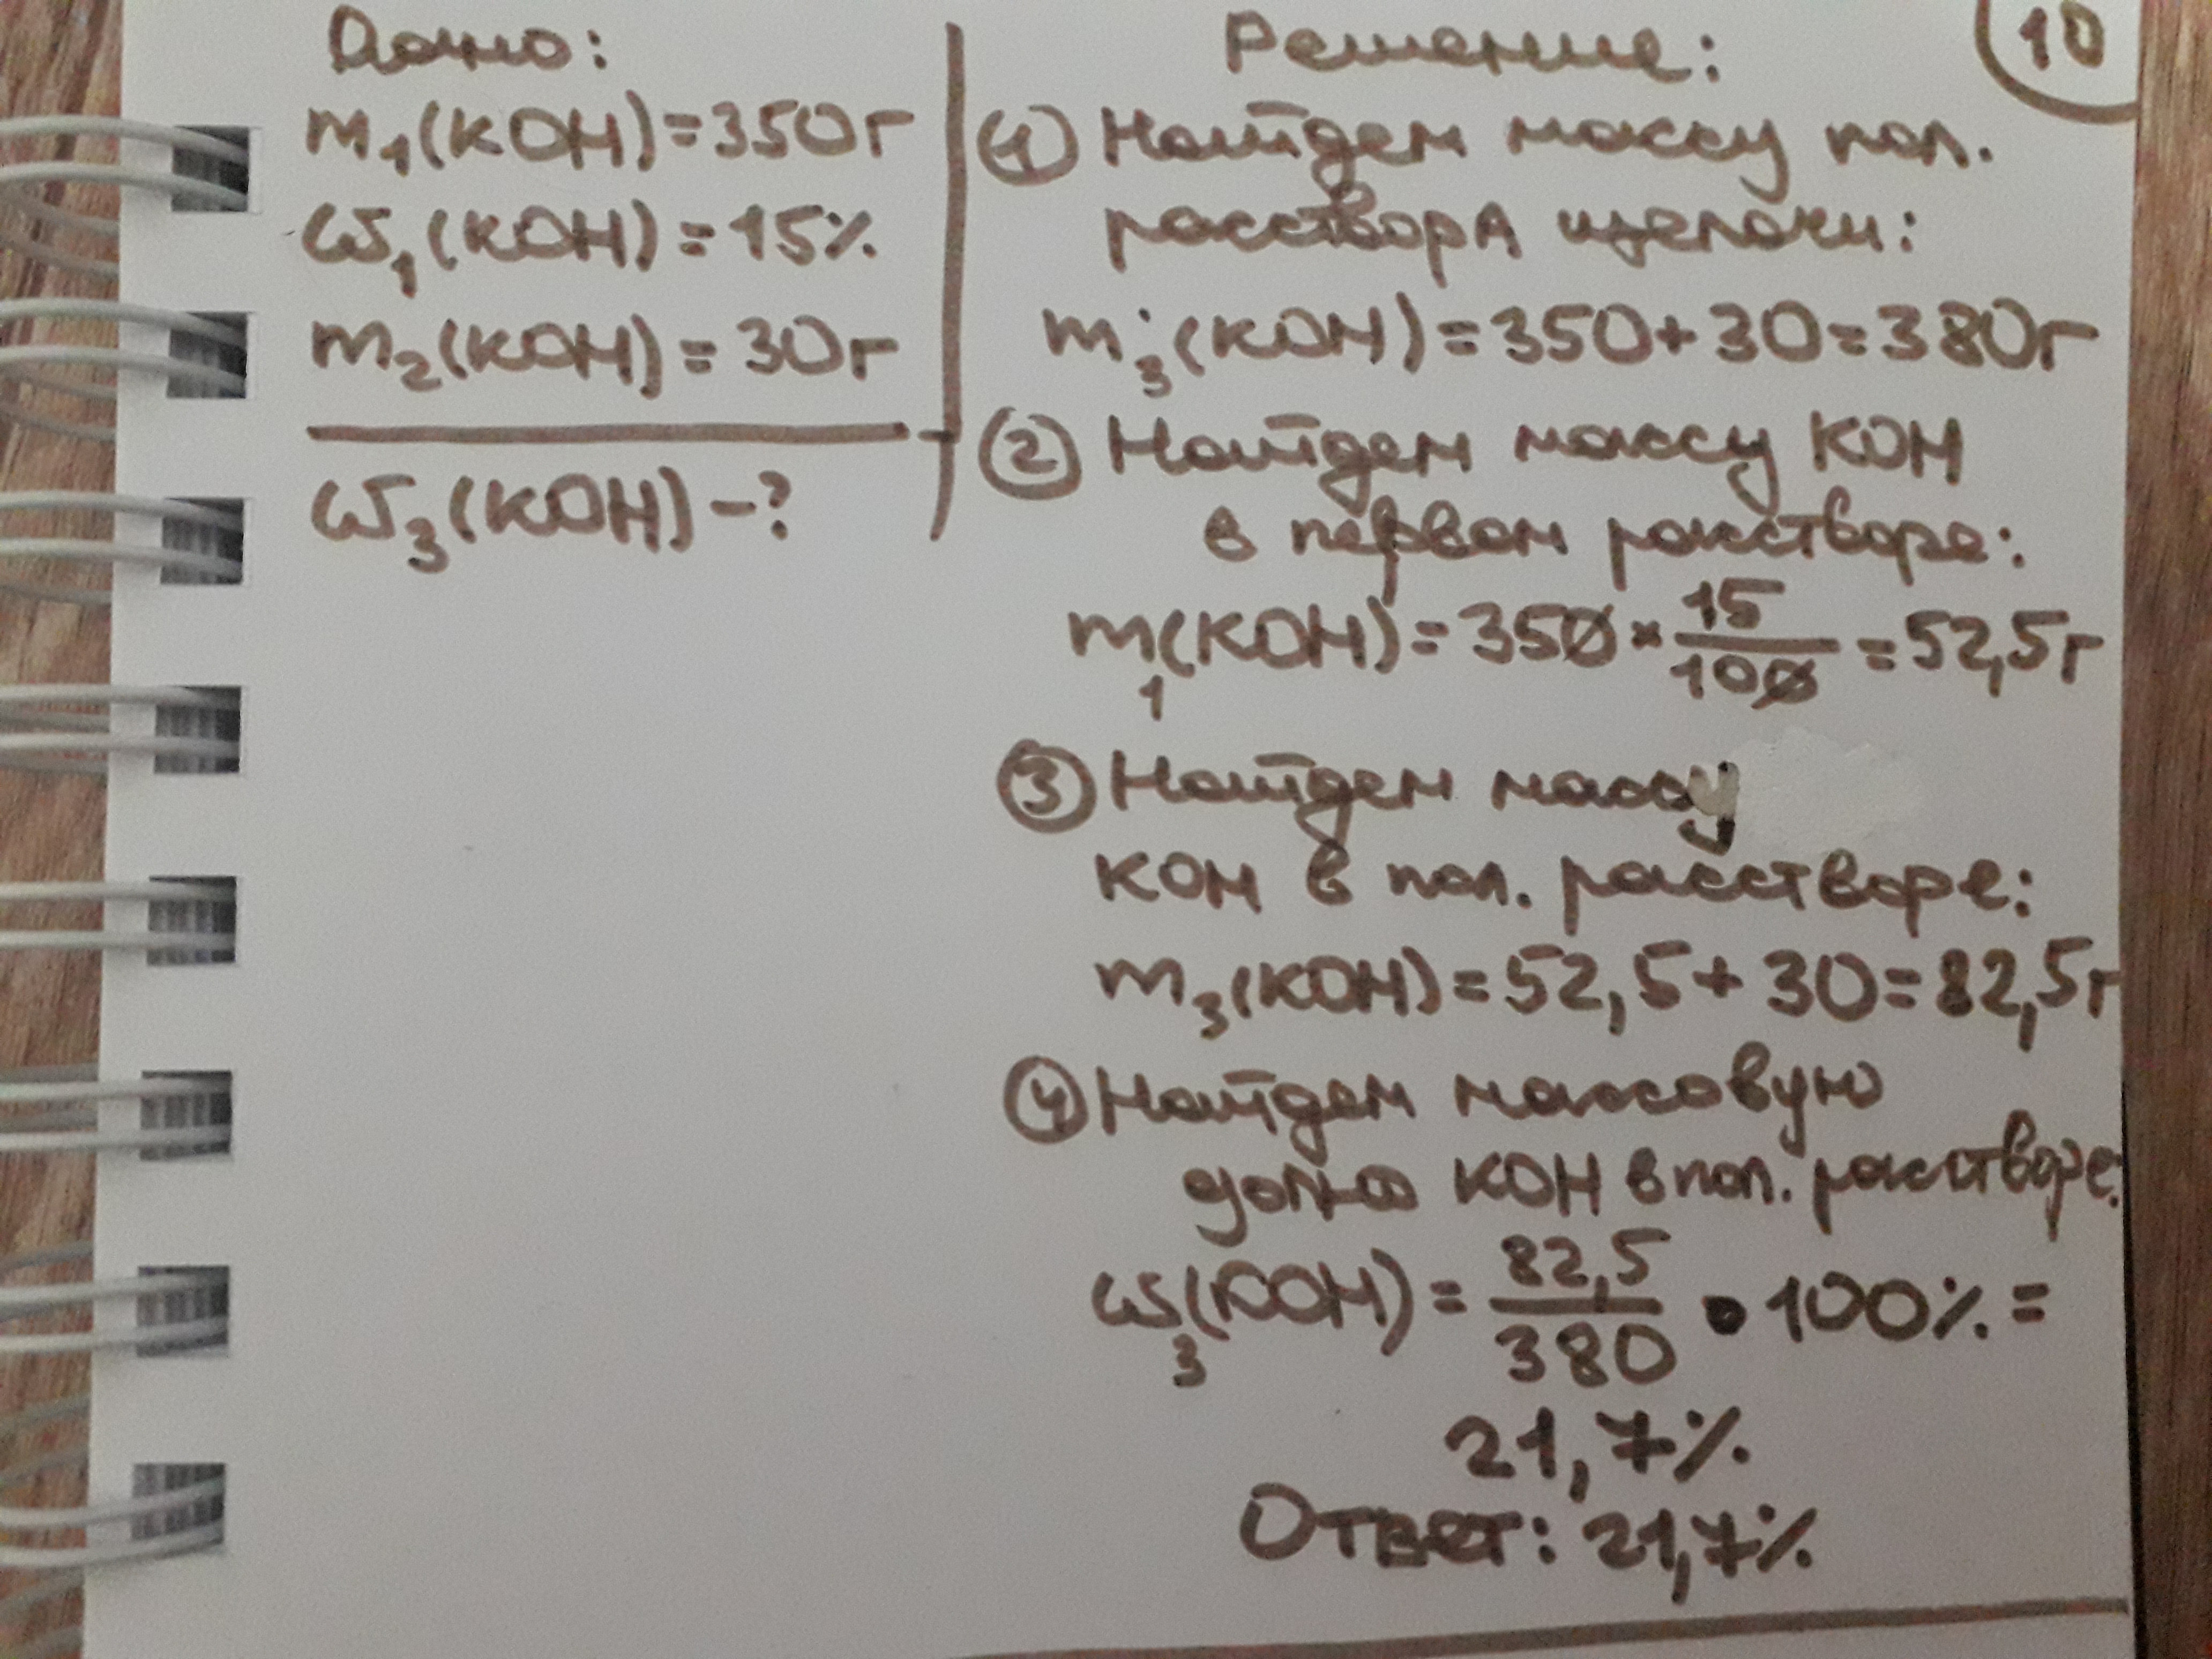 Дано:
m₁(KOH)=350г
ω₁(KOH)=15%
m₂(KOH)=30г
ω₃(KOH)-?
Решение:
10
① Найдем массу пол.
расствора щелочи:
m₃(KOH)=350+30=380г
② Найдем массу KOH
в первом расстворе:
m₁(KOH)=350×15/100=52,5г
③ Найдем массу
KOH в пол. расстворе:
m₃(KOH)=52,5+30=82,5г
④ Найдем массовую
долю KOH в пол. расстворе:
ω₃(KOH)=82,5/380•100%=
21,7%
Ответ: 21,7%